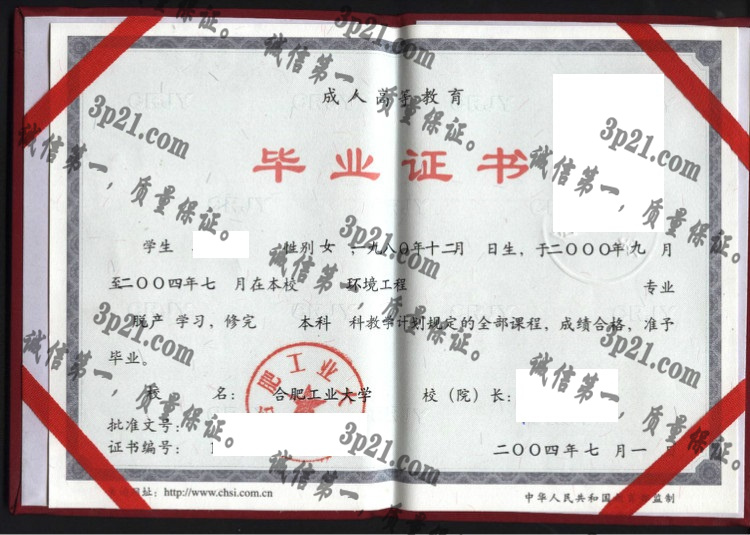 成人高等教育
毕业证书
学生 性别 女，一九八〇年十二月 日生，于二〇〇〇年九 月
至二〇〇四年七 月在本校 环境工程 专业
脱产 学习，修完 本科 科教学计划规定的全部课程，成绩合格，准予
毕业。
校 名： 合肥工业大学 校（院）长：
批准文号：
证书编号：
二〇〇四年七 月一
网址：http://www.chsi.com.cn
中华人民共和国 监制
肥工业大
3p21.com
诚信第一，质量保证。
3p21.com
诚信第一，质量保证。
3p21.com
诚信第一，质量保证。
3p21.com
诚信第一，质量保证。
3p21.com
诚信第一，质量保证。
3p21.com
诚信第一，质量保证。
3p21.com
诚信第一，